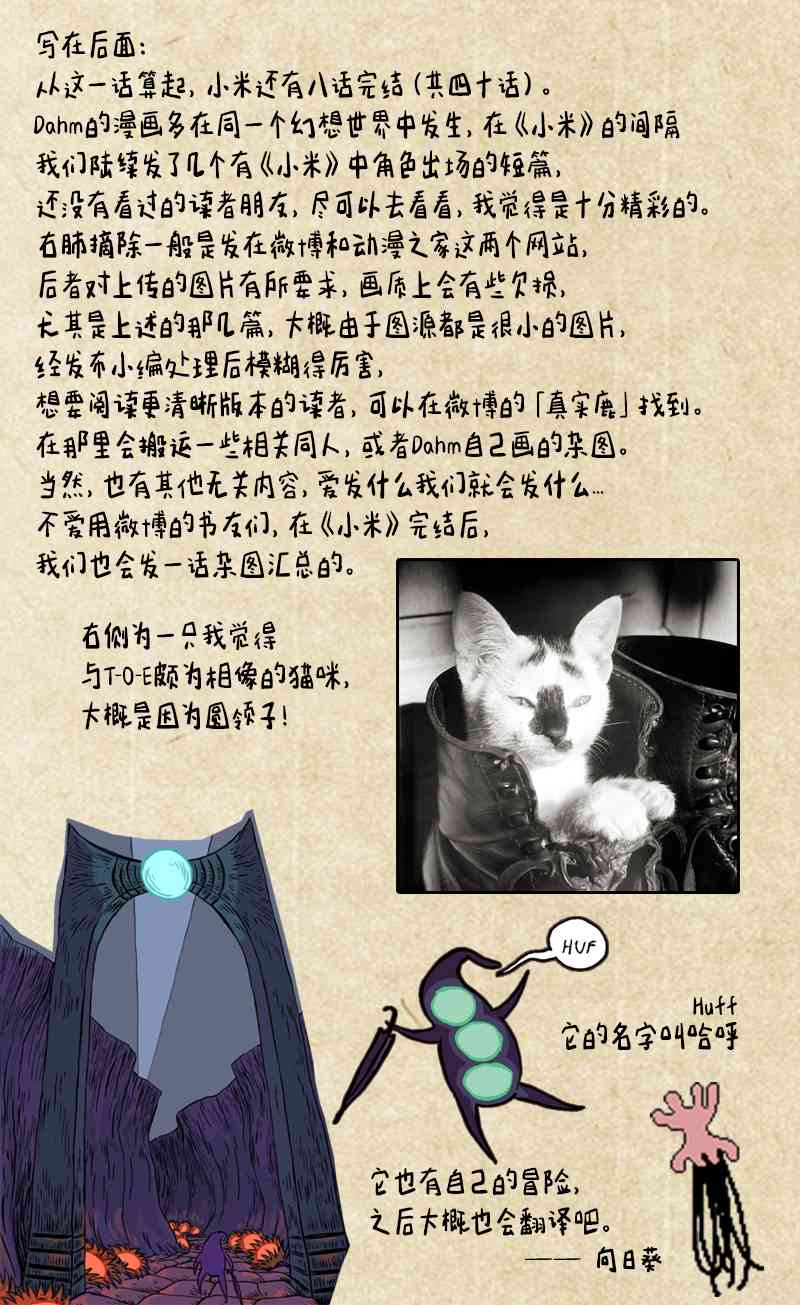 写在后面：
从这一话算起，小米还有八话完结（共四十话）。
Dahm的漫画多在同一个幻想世界中发生，在《小米》的间隔
我们陆续发了几个有《小米》中角色出场的短篇，
还没有看过的读者朋友，尽可以去看看，我觉得是十分精彩的。
右肺摘除一般是发在微博和动漫之家这两个网站，
后者对上传的图片有所要求，画质上会有些欠损，
尤其是上述的那几篇，大概由于图源都是很小的图片，
经发布小编处理后模糊得厉害，
想要阅读更清晰版本的读者，可以在微博的「真实鹿」找到。
在那里会搬运一些相关同人，或者Dahm自己画的杂图。
当然，也有其他无关内容，爱发什么我们就会发什么…
不爱用微博的书友们，在《小米》完结后，
我们也会发一话杂图汇总的。
右侧为一只我觉得
与T-O-E颇为相像的猫咪，
大概是因为圆领子！
HUF
Huff
它的名字叫哈呼
它也有自己的冒险，
之后大概也会翻译吧。
—— 向日葵